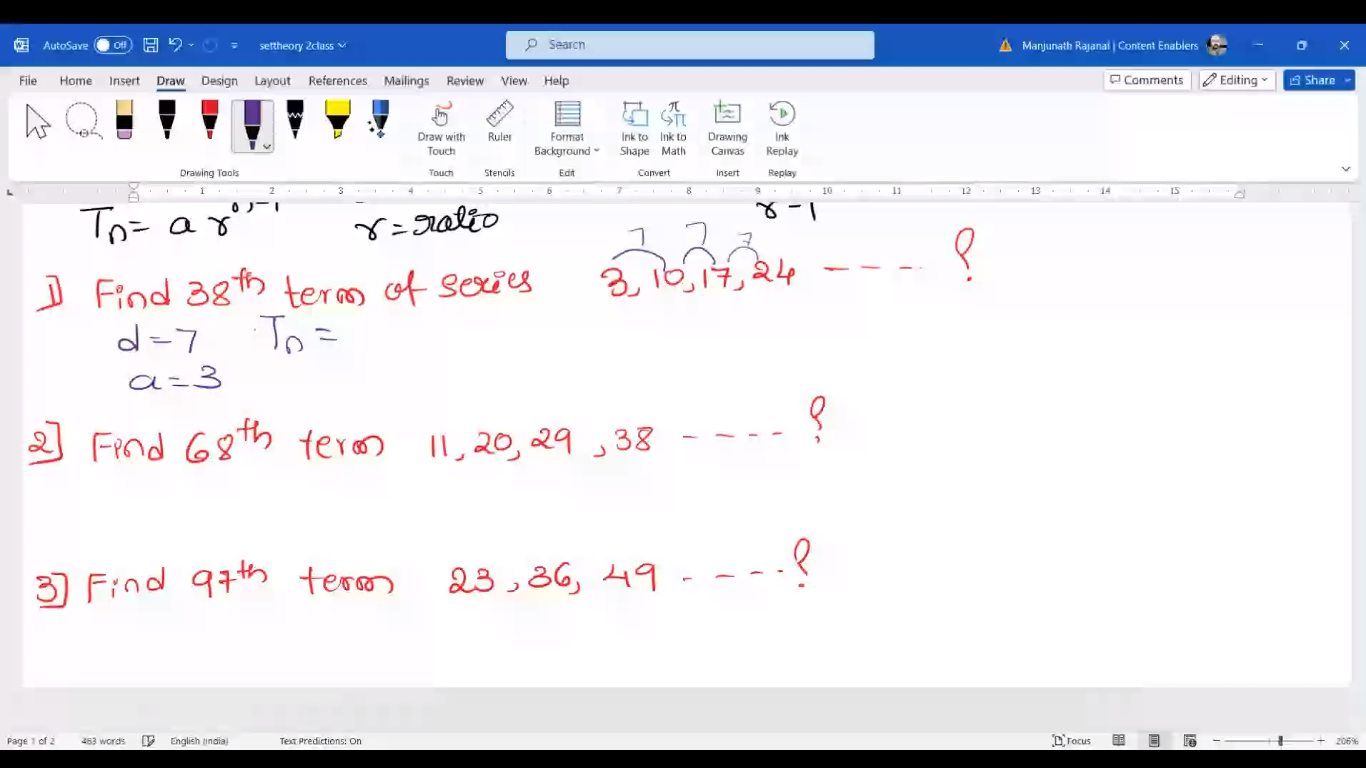 AutoSave Off settheory 2class Search Manjunath Rajanal | Content Enablers
File Home Insert Draw Design Layout References Mailings Review View Help Comments Editing Share
Draw with Touch Ruler Format Background Ink to Shape Ink to Math Drawing Canvas Ink Replay
Drawing Tools Touch Stencils Edit Convert Insert Replay
1 2 3 4 5 6 7 8 9 10 11 12 13 14 15
Tn = a r n-1 r = ratio r-1
7 7 7
1) Find 38th term of series 3, 10, 17, 24 ---- ?
d = 7 Tn =
a = 3
2] Find 68th term 11, 20, 29, 38 ---- ?
3] Find 97th term 23, 36, 49 ---- ?
Page 1 of 2 463 words English (India) Text Predictions: On Focus 206%